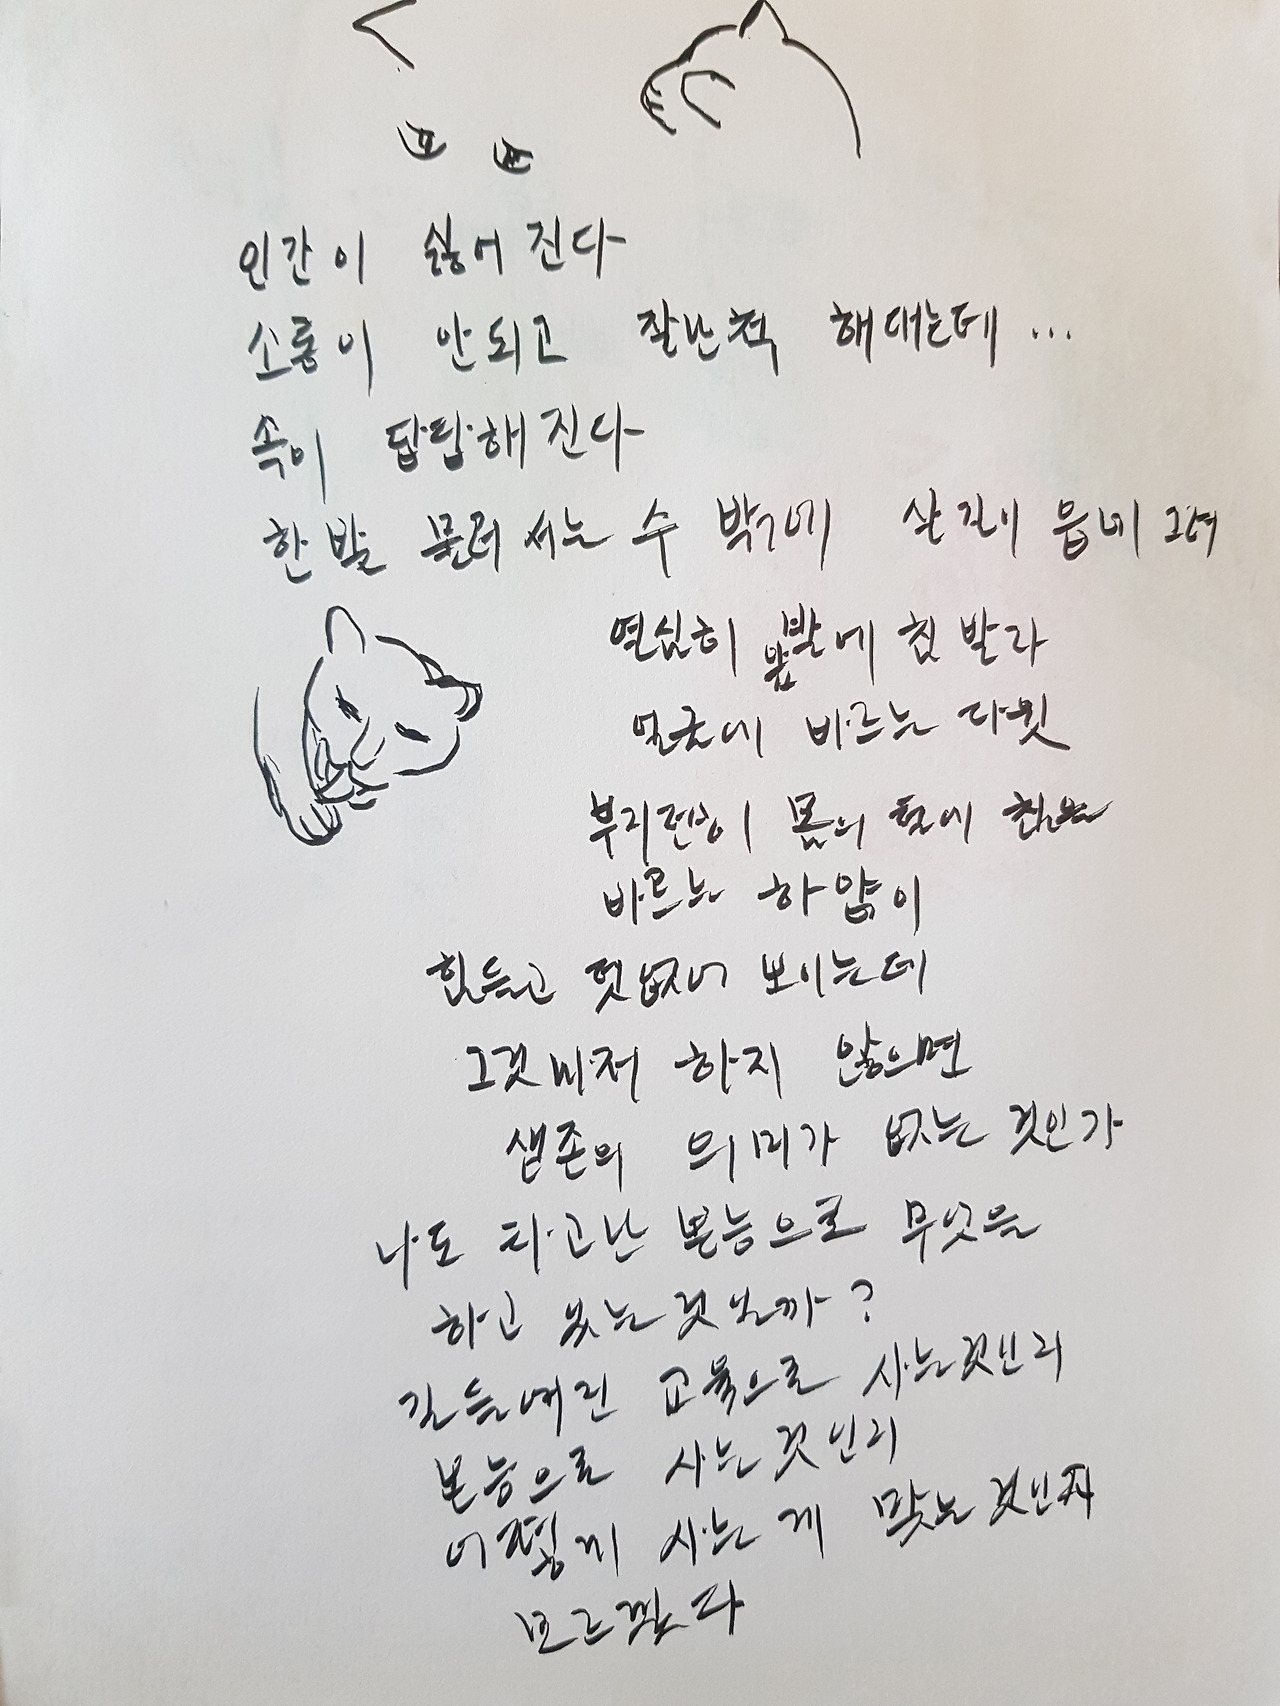 인간이 싫어진다
소통이 안되고 잘난척 해대는데...
속이 답답해진다
한발 물러서는 수 밖에 살길이 읍네 그려
열심히 앞발에 침 발라
얼굴에 바르는 다윗
부지런히 몸의 털에 침을
바르는 하얌이
힘들고 헛없어 보이는데
그것마저 하지 않으면
생존의 의미가 없는 것인가
나도 타고난 본능으로 무엇을
하고 있는 것일까?
길들여진 교육으로 사는것인지
본능으로 사는 것인지
어떻게 사는 게 맞는 것인지
모르겠다